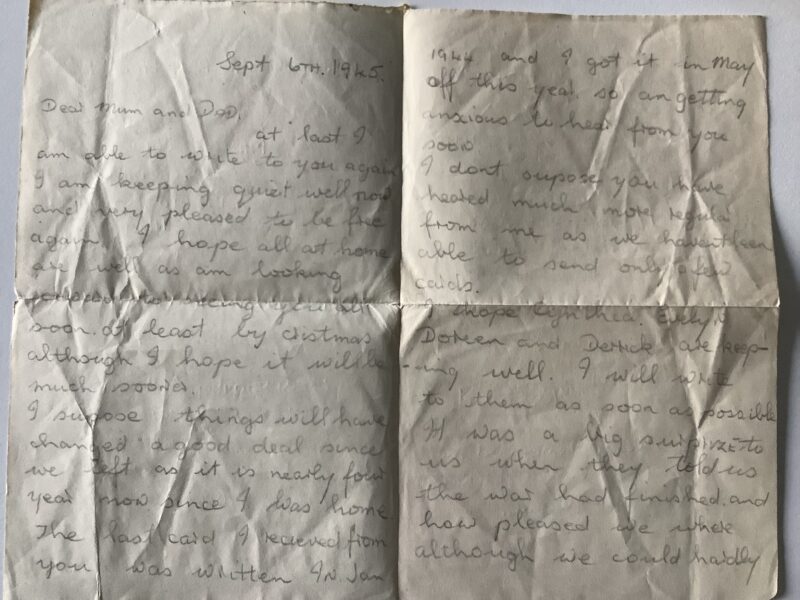 Sept 6TH. 1945.
Dear Mum and Dad,
at last I
am able to write to you again
I am keeping quiet well now
and very pleased to be free
again. I hope all at home
are well as am looking
seeing you all
soon. at least by cristmas
although I hope it will be
much sooner.
I supose things will have
changed a good deal since
we left as it is nearly four
year now since I was home
The last card I recieved from
you was written In Jan
1944 and I got it in May
off this year. so am getting
anxious to hear from you
soon
I dont supose you have
heared much more regular
from me as we havent been
able to send only a few
cards.
I hope Cynthia. Evelyn
Doreen and Derrick are keep-
-ing well. I will write
to them as soon as possible
It was a big surprize to
us when they told us
the war had finished. and
how pleased we where
although we could hardly